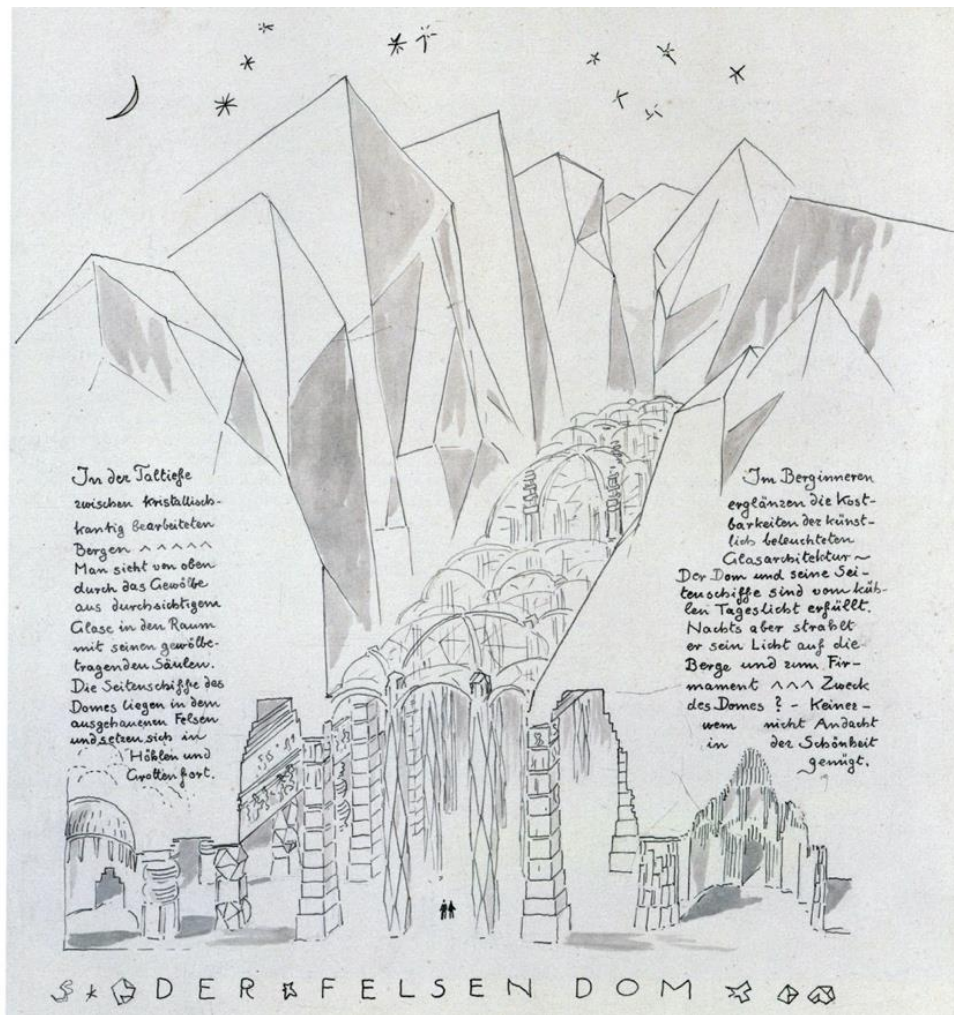 In der Taltiefe
zwischen kristallisch-
kantig bearbeiteten
Bergen ^ ^ ^ ^ ^
Man sieht von oben
durch das Gewölbe
aus durchsichtigem
Glase in den Raum
mit seinen gewölbe-
tragenden Säulen.
Die Seitenschiffe des
Domes liegen in dem
ausgehauenen Felsen
und setzen sich in
Höhlen und
Grotten fort.
Im Berginneren
erglänzen die Kost-
barkeiten der künst-
lich beleuchteten
Glasarchitektur ~
Der Dom und seine Sei-
tenschiffe sind vom küh-
len Tageslicht erfüllt.
Nachts aber strahlt
er sein Licht auf die
Berge und zum Fir-
mament ^ ^ ^ Zweck
des Domes ? - Keiner -
wem nicht Andacht
in der Schönheit
genügt.
DER FELSEN DOM